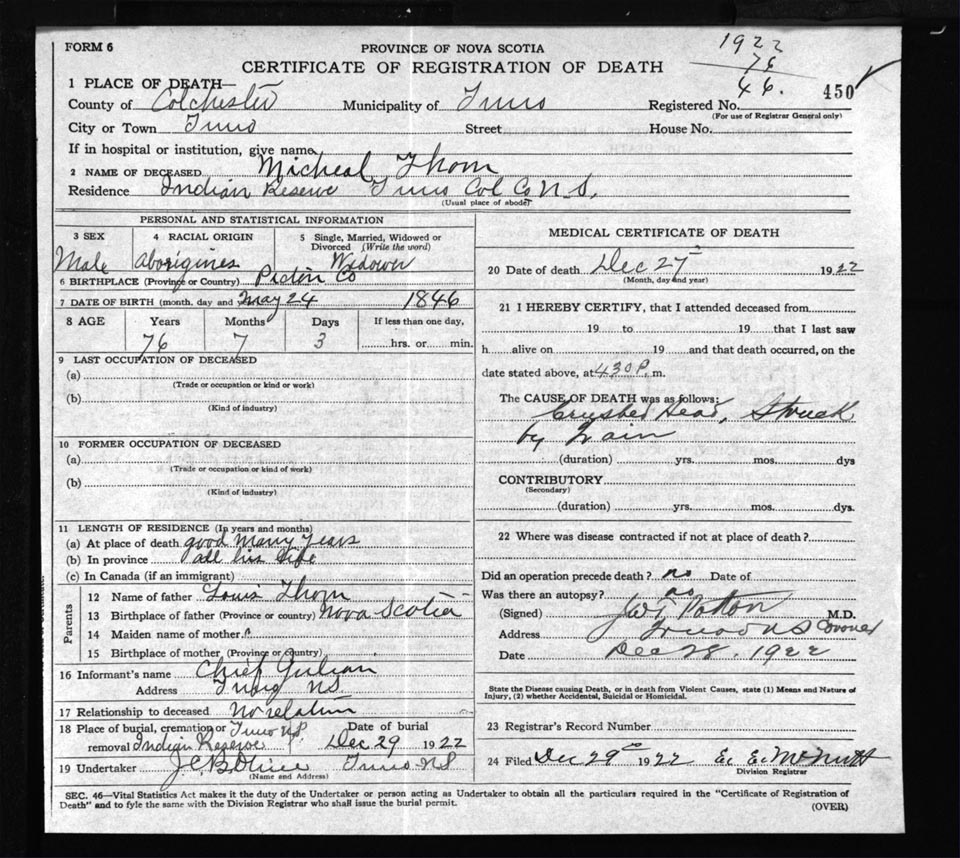 FORM 6
PROVINCE OF NOVA SCOTIA
CERTIFICATE OF REGISTRATION OF DEATH
1922
76
46.
450
1 PLACE OF DEATH—
County of Colchester Municipality of Truro Registered No.
(For use of Registrar General only)
City or Town Truro Street House No.
If in hospital or institution, give name
2 NAME OF DECEASED Micheal Thom
Residence Indian Reserve Truro Col Co N.S.
(Usual place of abode)
PERSONAL AND STATISTICAL INFORMATION
3 SEX 4 RACIAL ORIGIN 5 Single, Married, Widowed or Divorced (Write the word)
Male Aborigines Widower
6 BIRTHPLACE (Province or Country) Pictou Co
7 DATE OF BIRTH (month, day and May 24 1846
8 AGE Years Months Days If less than one day,
76 7 3 hrs. or min.
9 LAST OCCUPATION OF DECEASED
(a)
(Trade or occupation or kind or work)
(b)
(Kind of industry)
10 FORMER OCCUPATION OF DECEASED
(a)
(Trade or occupation or kind of work)
(b)
(Kind of industry)
11 LENGTH OF RESIDENCE (In years and months)
(a) At place of death good Many Years
(b) In province all his life
(c) In Canada (if an immigrant)
Parents
12 Name of father Louis Thom
13 Birthplace of father (Province or country) Nova Scotia
14 Maiden name of mother
15 Birthplace of mother (Province or country)
16 Informant's name Chief
Address Truro NS
17 Relationship to deceased No relation
18 Place of burial, cremation or removal Truro N.S. Indian Reserve Date of burial Dec 29 1922
19 Undertaker Truro NS
(Name and Address)
MEDICAL CERTIFICATE OF DEATH
20 Date of death Dec 27 1922
(Month, day and year)
21 I HEREBY CERTIFY, that I attended deceased from
19 to 19 that I last saw
h alive on 19 and that death occurred, on the
date stated above, at 4.30 P. m.
The CAUSE OF DEATH was as follows:
Crushed Head, Struck
by Train
(duration) yrs. mos. dys
CONTRIBUTORY
(Secondary)
(duration) yrs. mos. dys.
22 Where was disease contracted if not at place of death?
Did an operation precede death? no Date of
Was there an autopsy? no
(Signed) Patton M.D.
Address Truro N S Coroner
Date Dec 28. 1922
State the Disease causing Death, or in death from Violent Causes, state (1) Means and Nature of
Injury, (2) whether Accidental, Suicidal or Homicidal.
23 Registrar's Record Number
24 Filed Dec 29 1922 E. E. McNutt
Division Registrar
SEC. 46—Vital Statistics Act makes it the duty of the Undertaker or person acting as Undertaker to obtain all the particulars required in the "Certificate of Registration of
Death" and to fyle the same with the Division Registrar who shall issue the burial permit.
(OVER)